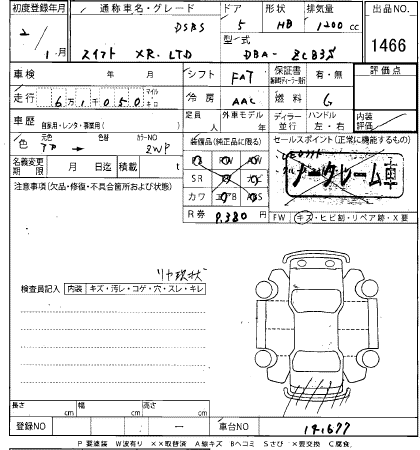 初度登録年月 通称車名・グレード ドア 形状 排気量 出品NO.
DSBS 5 HB 1200 cc
2/ 1月 スイフト XR.LTD 型式 DBA- ZC83S 1466
車検 年 月 シフト FAT 保証書 有・無 評価点
走行 6万1千050 マイル キロ 冷房 AAC 燃料 G
車歴 自家用・レンタ・事業用( ) 定員 人 外車モデル 年 ディーラー 並行 ハンドル 左・右 内装 評価
色 元色 色替 カラーNO ZWP 装備品(純正品に限る) セールスポイント(正常に機能するもの)
名義変更 期限 月 日迄 積載 t SR ナビ ノークレーム車
注意事項(欠品・修復・不具合箇所および状態) カワ ABS
R券 9,380円 FW キズ・ヒビ割・リペア跡・X要
リヤ現状
検査員記入 内装 キズ・汚レ・コゲ・穴・スレ・キレ
長さ cm 幅 cm 高さ cm
登録NO 車台NO 141677
P 要塗装 W波有り ××取替済 A線キズ Bヘコミ Sさび ×要交換 C腐食